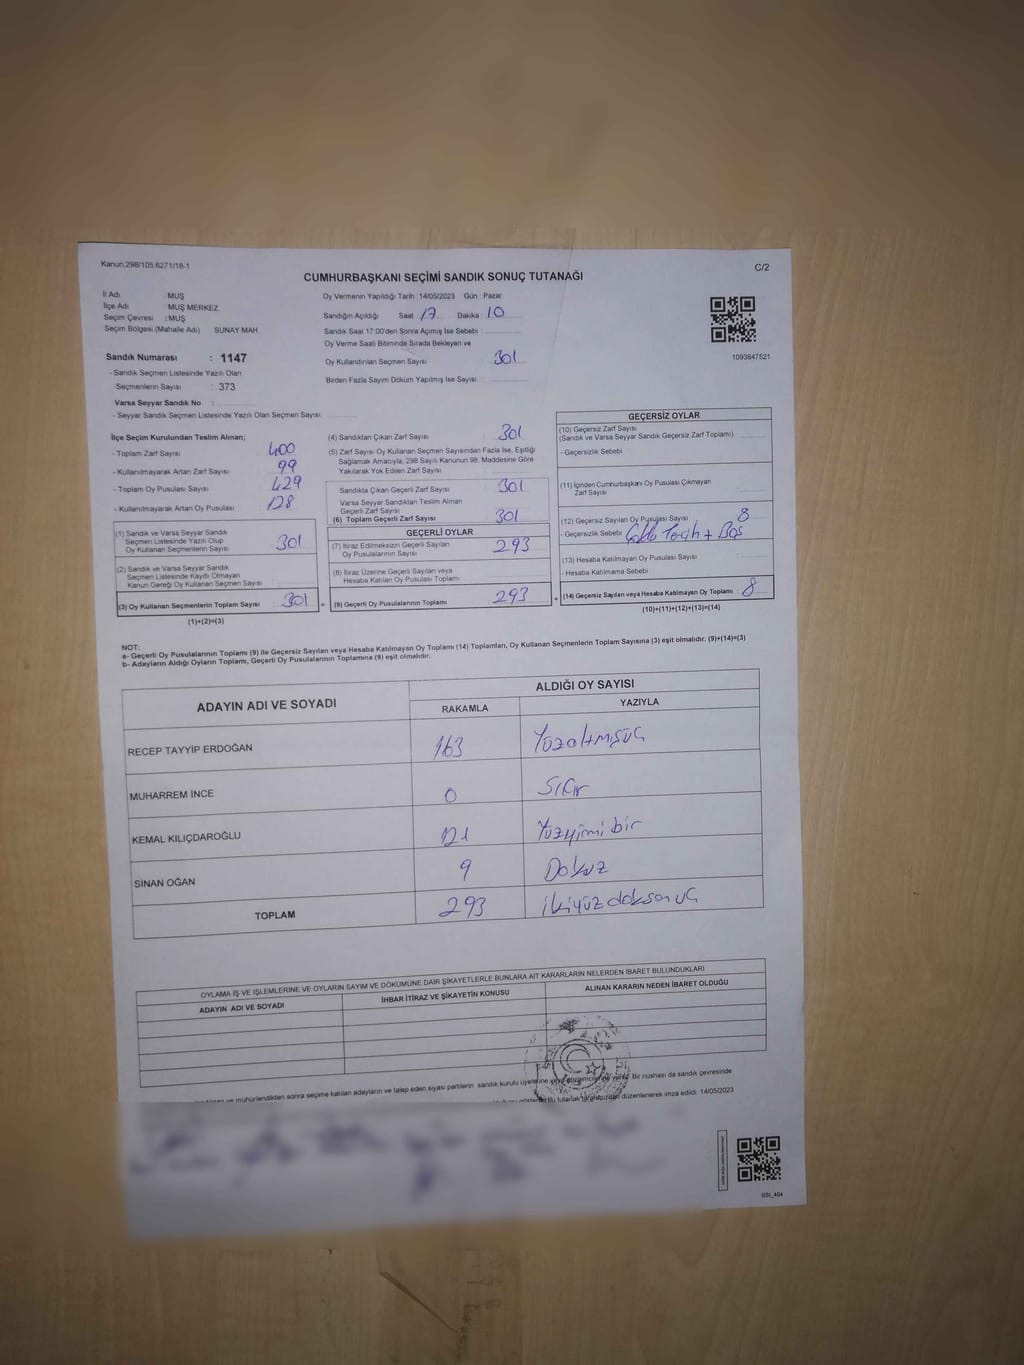 Kanun:298/105,6271/18-1
C/2
CUMHURBAŞKANI SEÇİMİ SANDIK SONUÇ TUTANAĞI
İl Adı : MUŞ
İlçe Adı : MUŞ MERKEZ
Seçim Çevresi : MUŞ
Seçim Bölgesi (Mahalle Adı) SUNAY MAH.
Sandık Numarası : 1147
- Sandık Seçmen Listesinde Yazılı Olan
Seçmenlerin Sayısı : 373
Varsa Seyyar Sandık No :
- Seyyar Sandık Seçmen Listesinde Yazılı Olan Seçmen Sayısı:
Oy Vermenin Yapıldığı Tarih :14/05/2023 Gün : Pazar
Sandığın Açıldığı Saat 17 Dakika 10
Sandık Saat 17:00'den Sonra Açılmış İse Sebebi :
Oy Verme Saati Bitiminde Sırada Bekleyen ve
Oy Kullandırılan Seçmen Sayısı : 301
Birden Fazla Sayım Döküm Yapılmış İse Sayısı :
1093847521
İlçe Seçim Kurulundan Teslim Alınan;
- Toplam Zarf Sayısı : 400
- Kullanılmayarak Artan Zarf Sayısı : 99
- Toplam Oy Pusulası Sayısı : 429
- Kullanılmayarak Artan Oy Pusulası : 128
(1) Sandık ve Varsa Seyyar Sandık
Seçmen Listesinde Yazılı Olup
Oy Kullanan Seçmenlerin Sayısı : 301
(2) Sandık ve Varsa Seyyar Sandık
Seçmen Listesinde Kayıtlı Olmayan
Kanun Gereği Oy Kullanan Seçmen Sayısı :
(3) Oy Kullanan Seçmenlerin Toplam Sayısı : 301
(1)+(2)=(3)
(4) Sandıktan Çıkan Zarf Sayısı : 301
(5) Zarf Sayısı Oy Kullanan Seçmen Sayısından Fazla İse, Eşitliği
Sağlamak Amacıyla; 298 Sayılı Kanunun 98. Maddesine Göre
Yakılarak Yok Edilen Zarf Sayısı :
Sandıkta Çıkan Geçerli Zarf Sayısı : 301
Varsa Seyyar Sandıktan Teslim Alınan
Geçerli Zarf Sayısı :
(6) Toplam Geçerli Zarf Sayısı : 301
GEÇERLİ OYLAR
(7) İtiraz Edilmeksizin Geçerli Sayılan
Oy Pusulalarının Sayısı : 293
(8) İtiraz Üzerine Geçerli Sayılan veya
Hesaba Katılan Oy Pusulası Toplamı :
= (9) Geçerli Oy Pusulalarının Toplamı : 293
GEÇERSİZ OYLAR
(10) Geçersiz Zarf Sayısı
(Sandık ve Varsa Seyyar Sandık Geçersiz Zarf Toplamı) :
- Geçersizlik Sebebi :
(11) İçinden Cumhurbaşkanı Oy Pusulası Çıkmayan
Zarf Sayısı :
(12) Geçersiz Sayılan Oy Pusulası Sayısı : 8
- Geçersizlik Sebebi : + Boş
(13) Hesaba Katılmayan Oy Pusulası Sayısı :
- Hesaba Katılmama Sebebi :
+ (14) Geçersiz Sayılan veya Hesaba Katılmayan Oy Toplamı : 8
(10)+(11)+(12)+(13)=(14)
NOT:
a- Geçerli Oy Pusulalarının Toplamı (9) ile Geçersiz Sayılan veya Hesaba Katılmayan Oy Toplamı (14) Toplamları, Oy Kullanan Seçmenlerin Toplam Sayısına (3) eşit olmalıdır. (9)+(14)=(3)
b- Adayların Aldığı Oyların Toplamı, Geçerli Oy Pusulalarının Toplamına (9) eşit olmalıdır.
ADAYIN ADI VE SOYADI
ALDIĞI OY SAYISI
RAKAMLA YAZIYLA
RECEP TAYYİP ERDOĞAN 163 Yüzaltmışüç
MUHARREM İNCE 0 Sıfır
KEMAL KILIÇDAROĞLU 121 Yüzyirmi bir
SİNAN OĞAN 9 Dokuz
TOPLAM 293 ikiyüz doksan üç
OYLAMA İŞ VE İŞLEMLERİNE VE OYLARIN SAYIM VE DÖKÜMÜNE DAİR ŞİKAYETLERLE BUNLARA AİT KARARLARIN NELERDEN İBARET BULUNDUKLARI
ADAYIN ADI VE SOYADI İHBAR İTİRAZ VE ŞİKAYETİN KONUSU ALINAN KARARIN NEDEN İBARET OLDUĞU
ve mühürlendikten sonra seçime katılan adayların ve talep eden siyasi partilerin sandık kurulu üyelerine Bir nüshası da sandık çevresinde
tarafımızdan düzenlenerek imza edildi. 14/05/2023
SSİ_404